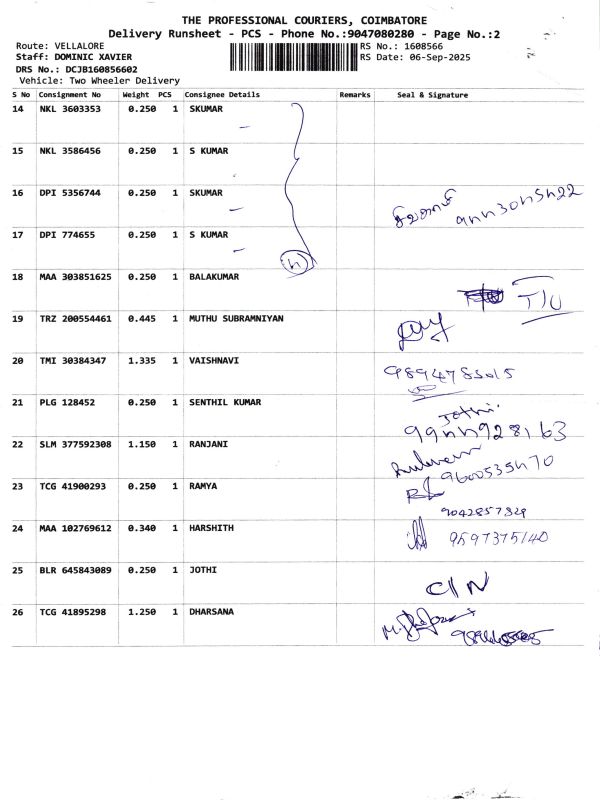 THE PROFESSIONAL COURIERS, COIMBATORE
Delivery Runsheet - PCS - Phone No.:9047080280 - Page No.:2
Route: VELLALORE RS No.: 1608566
Staff: DOMINIC XAVIER RS Date: 06-Sep-2025
DRS No.: DCJB160856602
Vehicle: Two Wheeler Delivery
S No Consignment No Weight PCS Consignee Details Remarks Seal & Signature
14 NKL 3603353 0.250 1 SKUMAR
15 NKL 3586456 0.250 1 S KUMAR
16 DPI 5356744 0.250 1 SKUMAR
17 DPI 774655 0.250 1 S KUMAR
18 MAA 303851625 0.250 1 BALAKUMAR
19 TRZ 200554461 0.445 1 MUTHU SUBRAMNIYAN
20 TMI 30384347 1.335 1 VAISHNAVI
21 PLG 128452 0.250 1 SENTHIL KUMAR
Jothi.
22 SLM 377592308 1.150 1 RANJANI
23 TCG 41900293 0.250 1 RAMYA
9042857829
24 MAA 102769612 0.340 1 HARSHITH 9597375140
25 BLR 645843089 0.250 1 JOTHI
26 TCG 41895298 1.250 1 DHARSANA